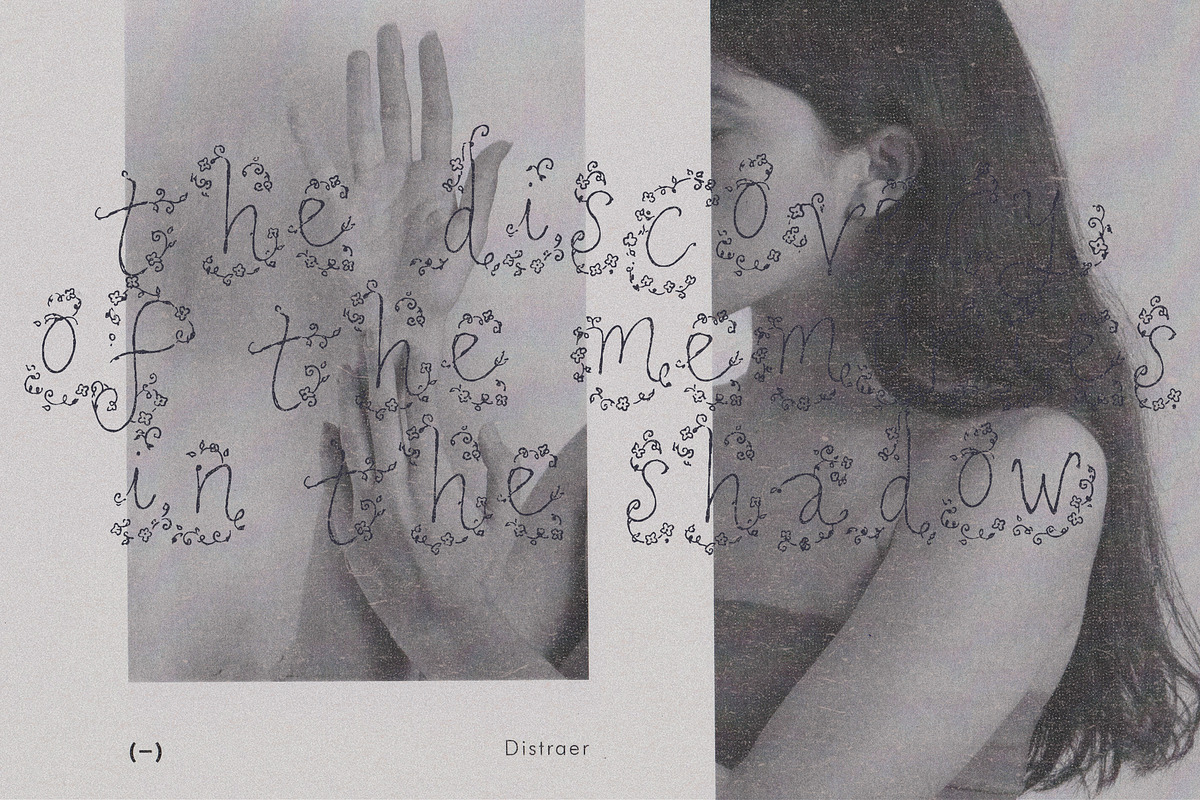 the discovery
of the memories
in the shadow
(–)
Distraer